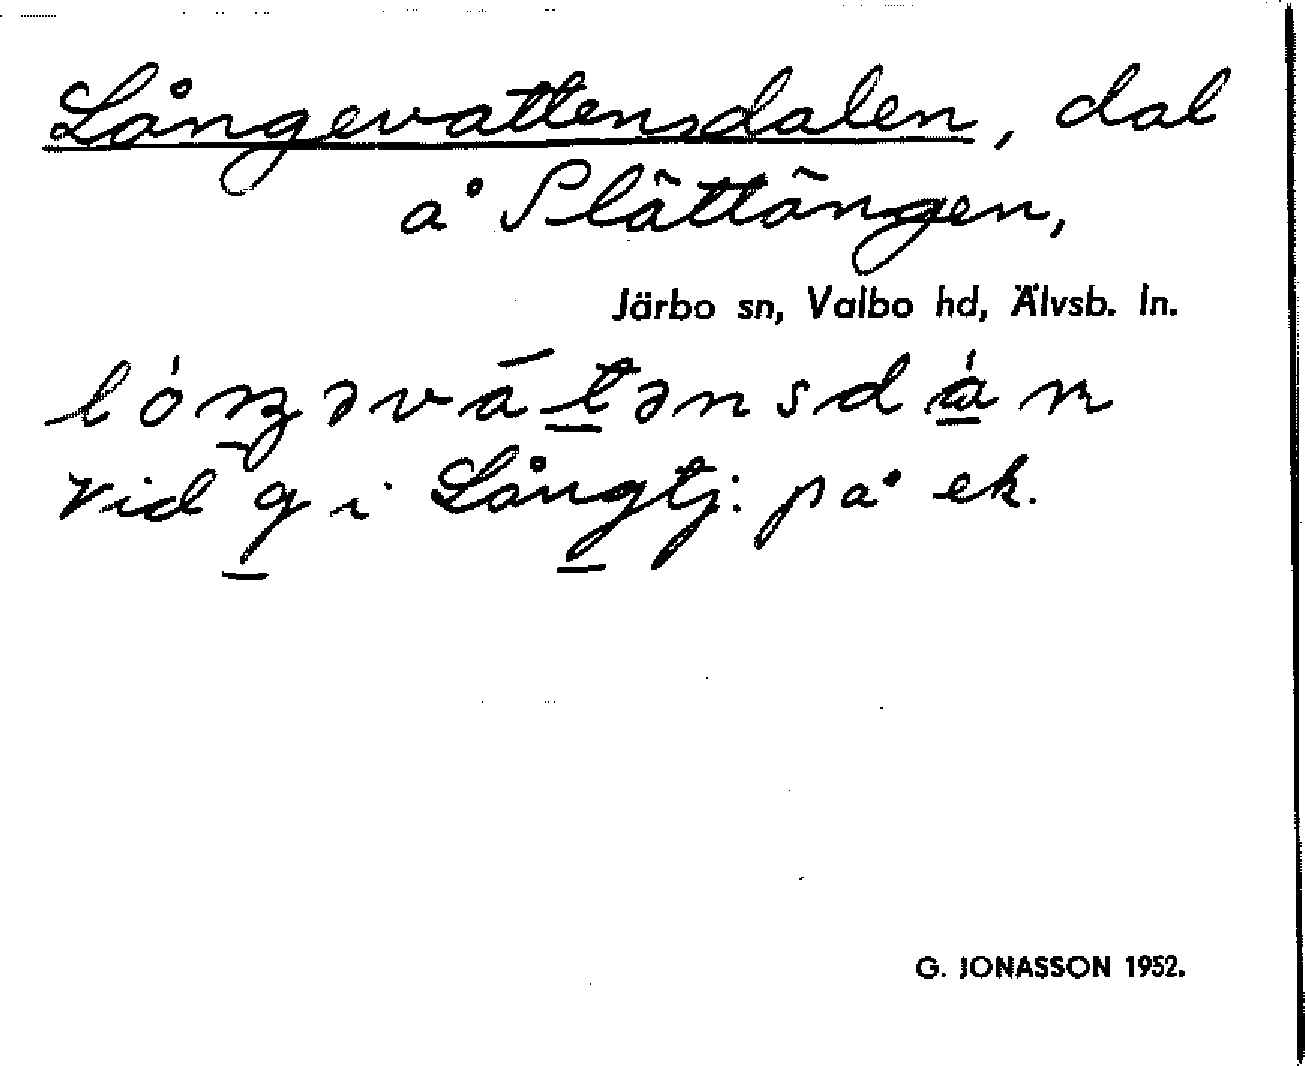 Långevattensdalen, dal
å Slättängen,
Järbo sn, Valbo hd, Älvsb. ln.
lóŋəvātənsdán
Vid g i Långtj: på ek.
G. JONASSON 1952.